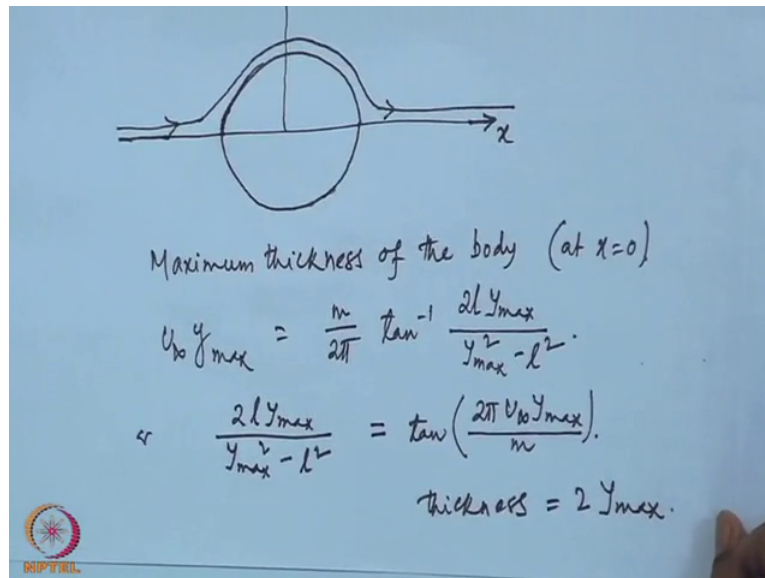 x
Maximum thickness of the body (at x=0)
U∞ y_max = m/2π tan⁻¹ 2l y_max / (y²_max - l²).
or 2l y_max / (y²_max - l²) = tan(2π U∞ y_max / m).
thickness = 2 y_max.
NPTEL